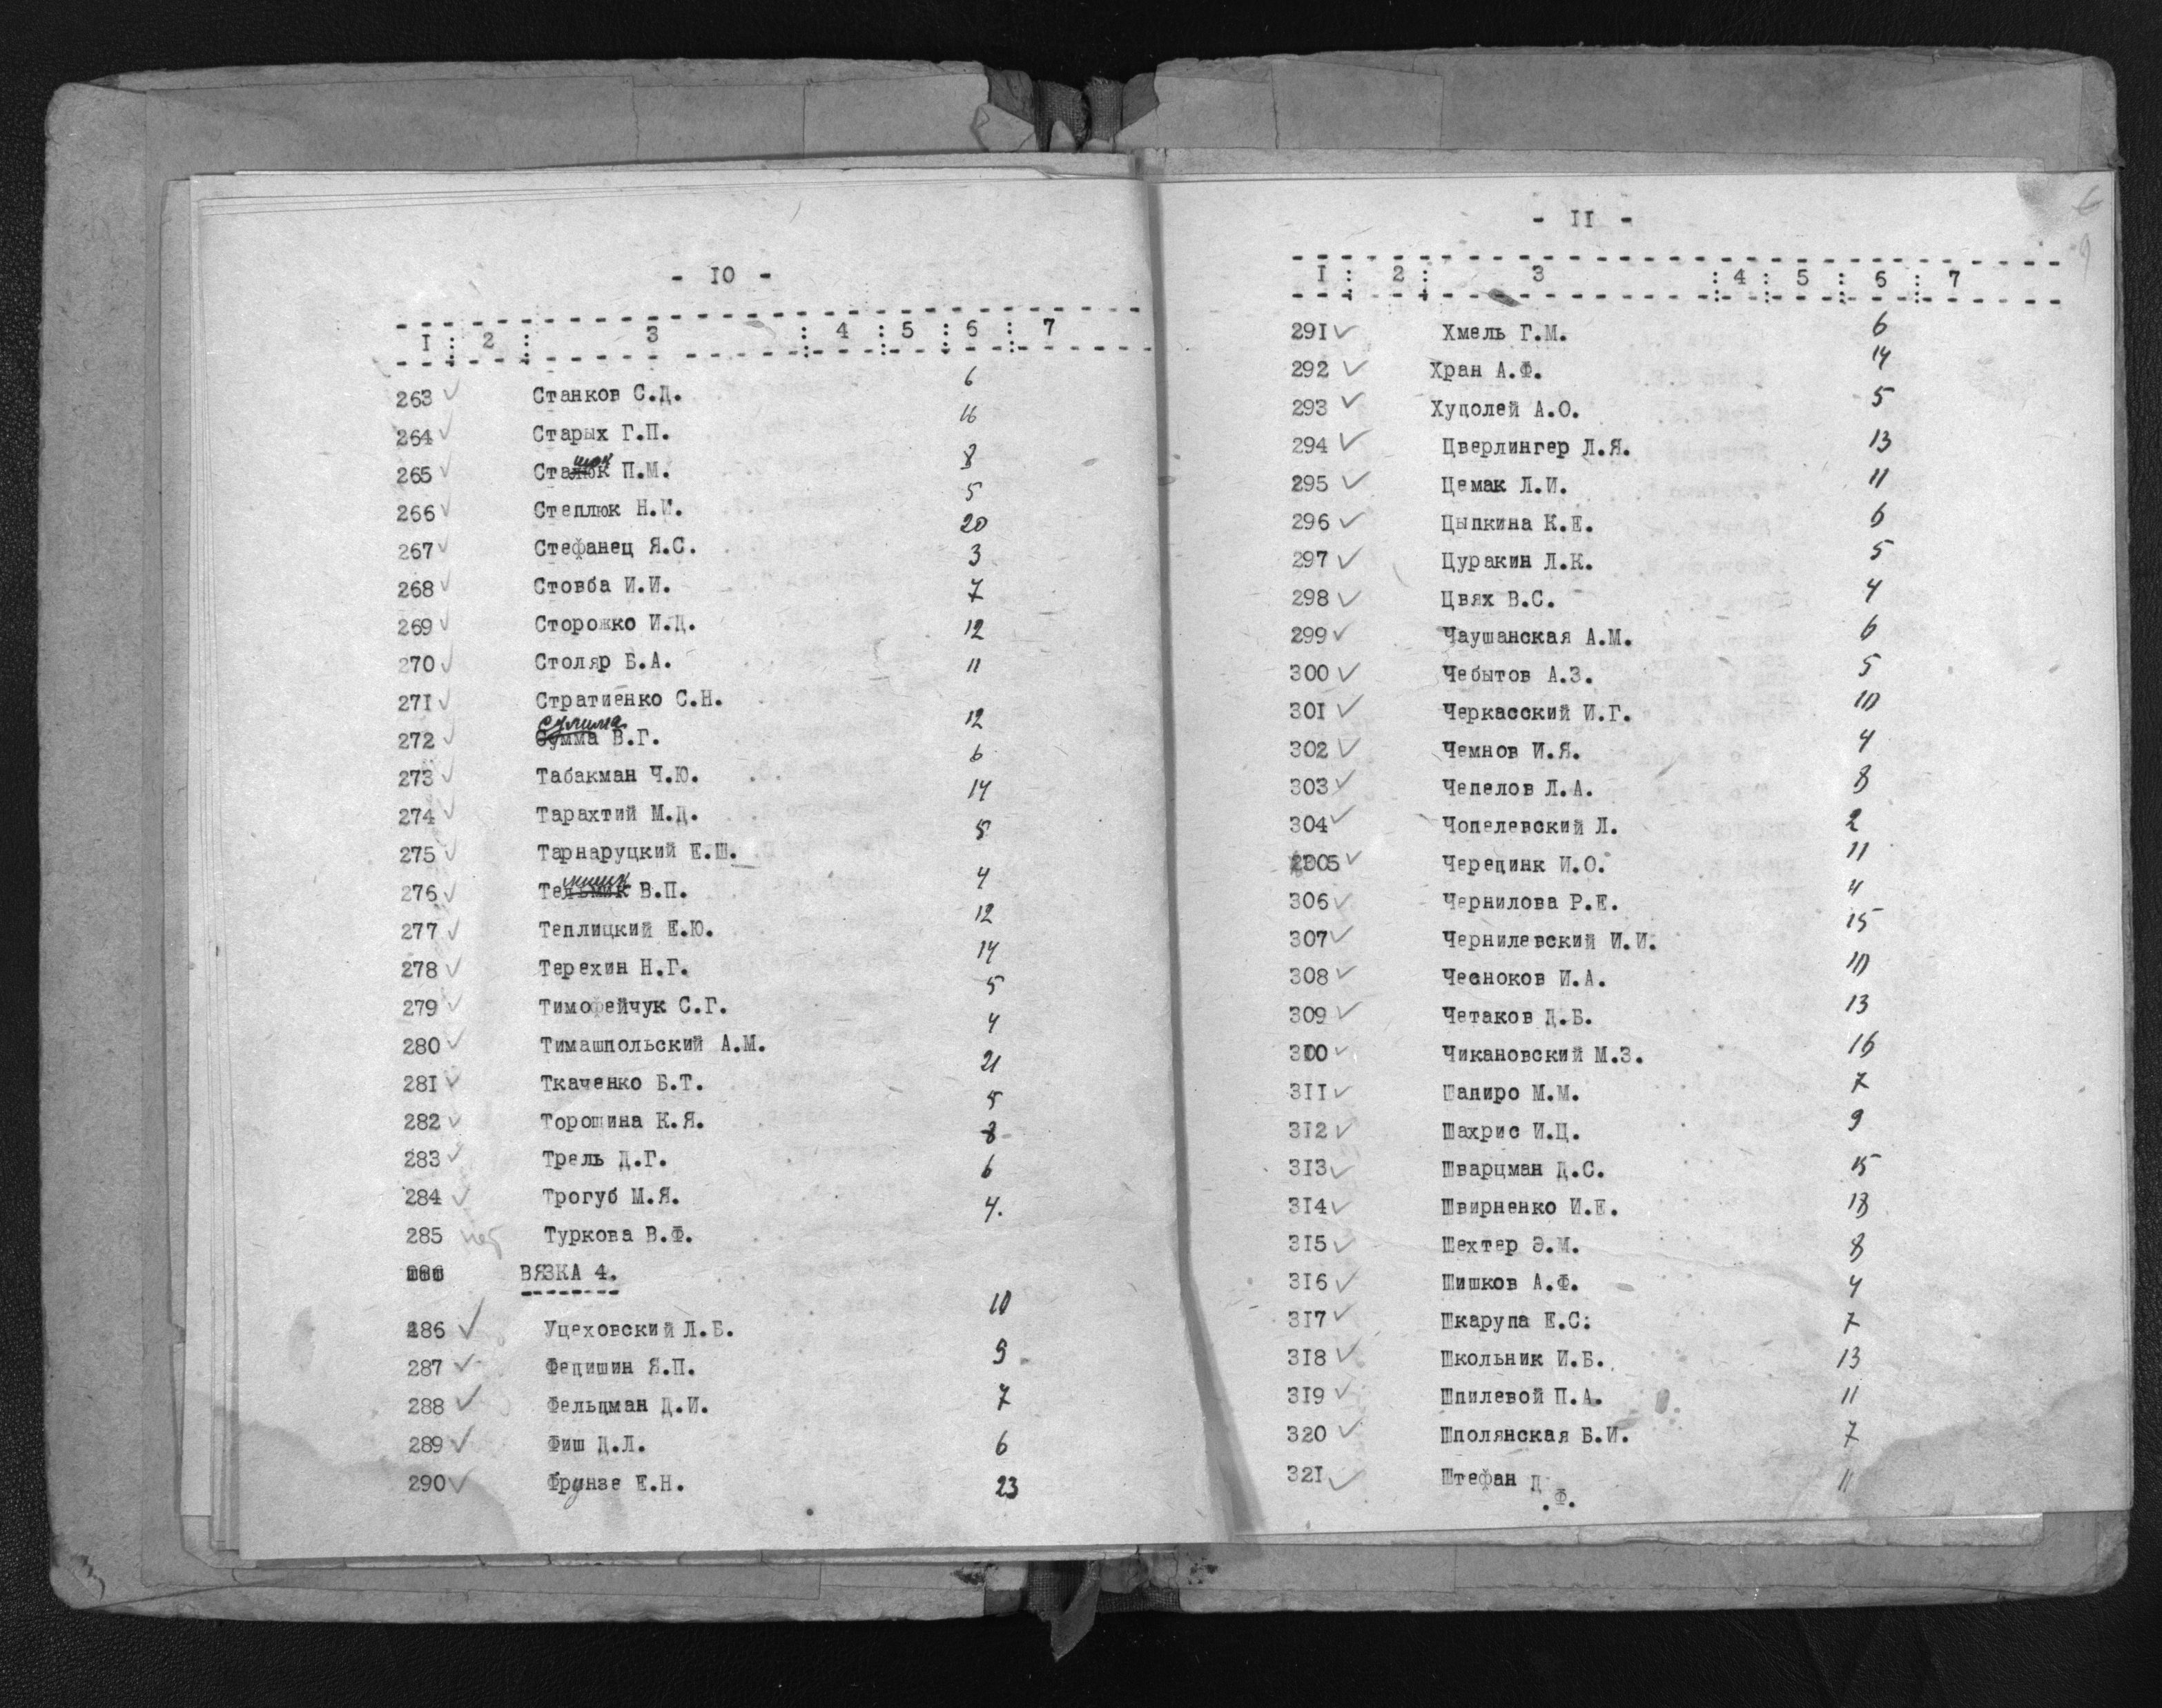 - 10 -
1 : 2 : 3 : 4 : 5 : 6 : 7
263 ✓ Станков С.Д. 6
264 ✓ Старых Г.П. 16
265 ✓ Сташок П.М. 8
266 ✓ Степлюк Н.И. 5
267 ✓ Стефанец Я.С. 20
268 ✓ Стовба И.И. 3
269 ✓ Сторожко И.Д. 7
270 ✓ Столяр Б.А. 12
271 ✓ Стратиенко С.Н. 11
Сулима
272 ✓ Сумма В.Г. 12
273 ✓ Табакман Ч.Ю. 6
274 ✓ Тарахтий М.Д. 14
275 ✓ Тарнаруцкий Е.Ш. 5
276 ✓ Тельмик В.П. 4
277 ✓ Теплицкий Е.Ю. 12
278 ✓ Терехин Н.Г. 14
279 ✓ Тимофейчук С.Г. 5
280 ✓ Тимашпольский А.М. 4
281 ✓ Ткаченко Б.Т. 21
282 ✓ Торощина К.Я. 5
283 ✓ Трель Д.Г. 8
284 ✓ Трогуб М.Я. 6
285 нет Туркова В.Ф. 4.
ВЯЗКА 4.
286 ✓ Уцеховский Л.Б. 10
287 ✓ Федишин Я.П. 9
288 ✓ Фельдман Д.И. 7
289 ✓ Фиш Д.Л. 6
290 ✓ Фрунзе Е.Н. 23
- 11 -
1 : 2 : 3 : 4 : 5 : 6 : 7
291 ✓ Хмель Г.М. 6
292 ✓ Хран А.Ф. 14
293 ✓ Худолей А.О. 5
294 ✓ Цверлингер Л.Я. 13
295 ✓ Цемак Л.И. 11
296 ✓ Цыпкина К.Е. 6
297 ✓ Цуракин Л.К. 5
298 ✓ Цвях В.С. 4
299 ✓ Чаушанская А.М. 6
300 ✓ Чебытов А.З. 5
301 ✓ Черкасский И.Г. 10
302 ✓ Чемнов И.Я. 4
303 ✓ Чепелов Л.А. 8
304 ✓ Чопелевский Л. 2
305 ✓ Черединк И.О. 11
306 ✓ Чернилова Р.Е. 4
307 ✓ Чернилевский И.И. 15
308 ✓ Чесноков И.А. 10
309 ✓ Четаков Д.Б. 13
310 ✓ Чикановский М.З. 16
311 ✓ Шапиро М.М. 7
312 ✓ Шахрис И.Ц. 9
313 ✓ Шварцман Д.С. 15
314 ✓ Швирненко И.Е. 18
315 ✓ Шехтер Э.М. 8
316 ✓ Шишков А.Ф. 4
317 ✓ Шкарупа Е.С. 7
318 ✓ Школьник И.Б. 13
319 ✓ Шпилевой П.А. 11
320 ✓ Шполянская Б.И. 7
321 ✓ Штефан Д.Ф. 11